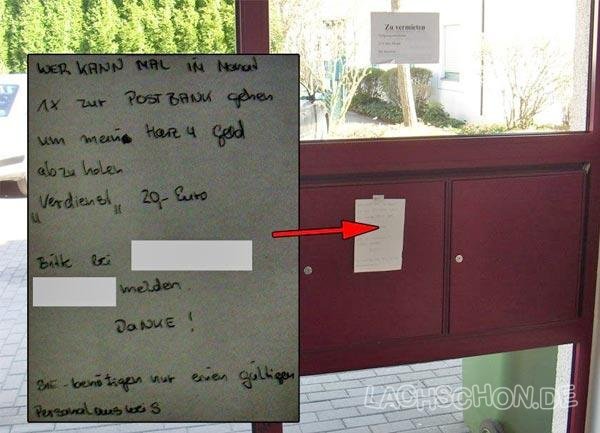 WER KANN MAL IN Monat
1x zur POSTBANK gehen
um meine Harz 4 Geld
abzuholen
"Verdienst" 20,- Euro
Bitte bei
melden.
DANKE!
Sie benötigen nur einen gültigen
Personalausweis
Zu vermieten
LACHSCHON.DE